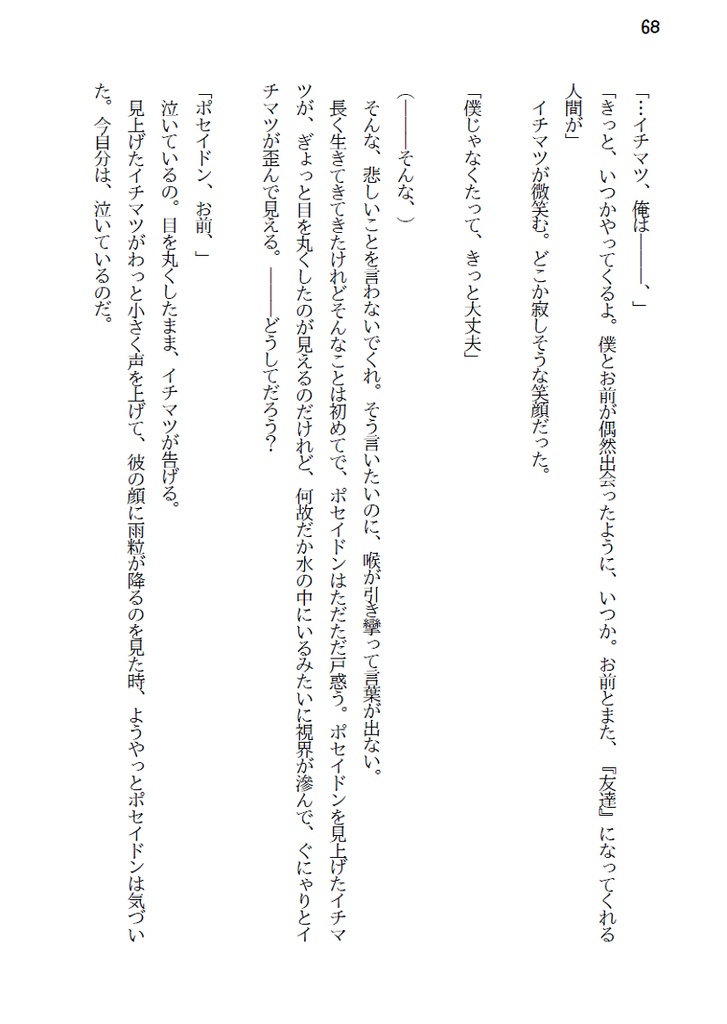 68
「…イチマツ、俺は―――、」
「きっと、いつかやってくるよ。僕とお前が偶然出会ったように、いつか。お前とまた、『友達』になってくれる
人間が」
イチマツが微笑む。どこか寂しそうな笑顔だった。
「僕じゃなくたって、きっと大丈夫」
(―――そんな、)
そんな、悲しいことを言わないでくれ。そう言いたいのに、喉が引き攣って言葉が出ない。
長く生きてきてきたけれどそんなことは初めてで、ポセイドンはただただ戸惑う。ポセイドンを見上げたイチマ
ツが、ぎょっと目を丸くしたのが見えるのだけれど、何故だか水の中にいるみたいに視界が滲んで、ぐにゃりとイ
チマツが歪んで見える。―――どうしてだろう？
「ポセイドン、お前、」
泣いているの。目を丸くしたまま、イチマツが告げる。
見上げたイチマツがわっと小さく声を上げて、彼の顔に雨粒が降るのを見た時、ようやっとポセイドンは気づい
た。今自分は、泣いているのだ。